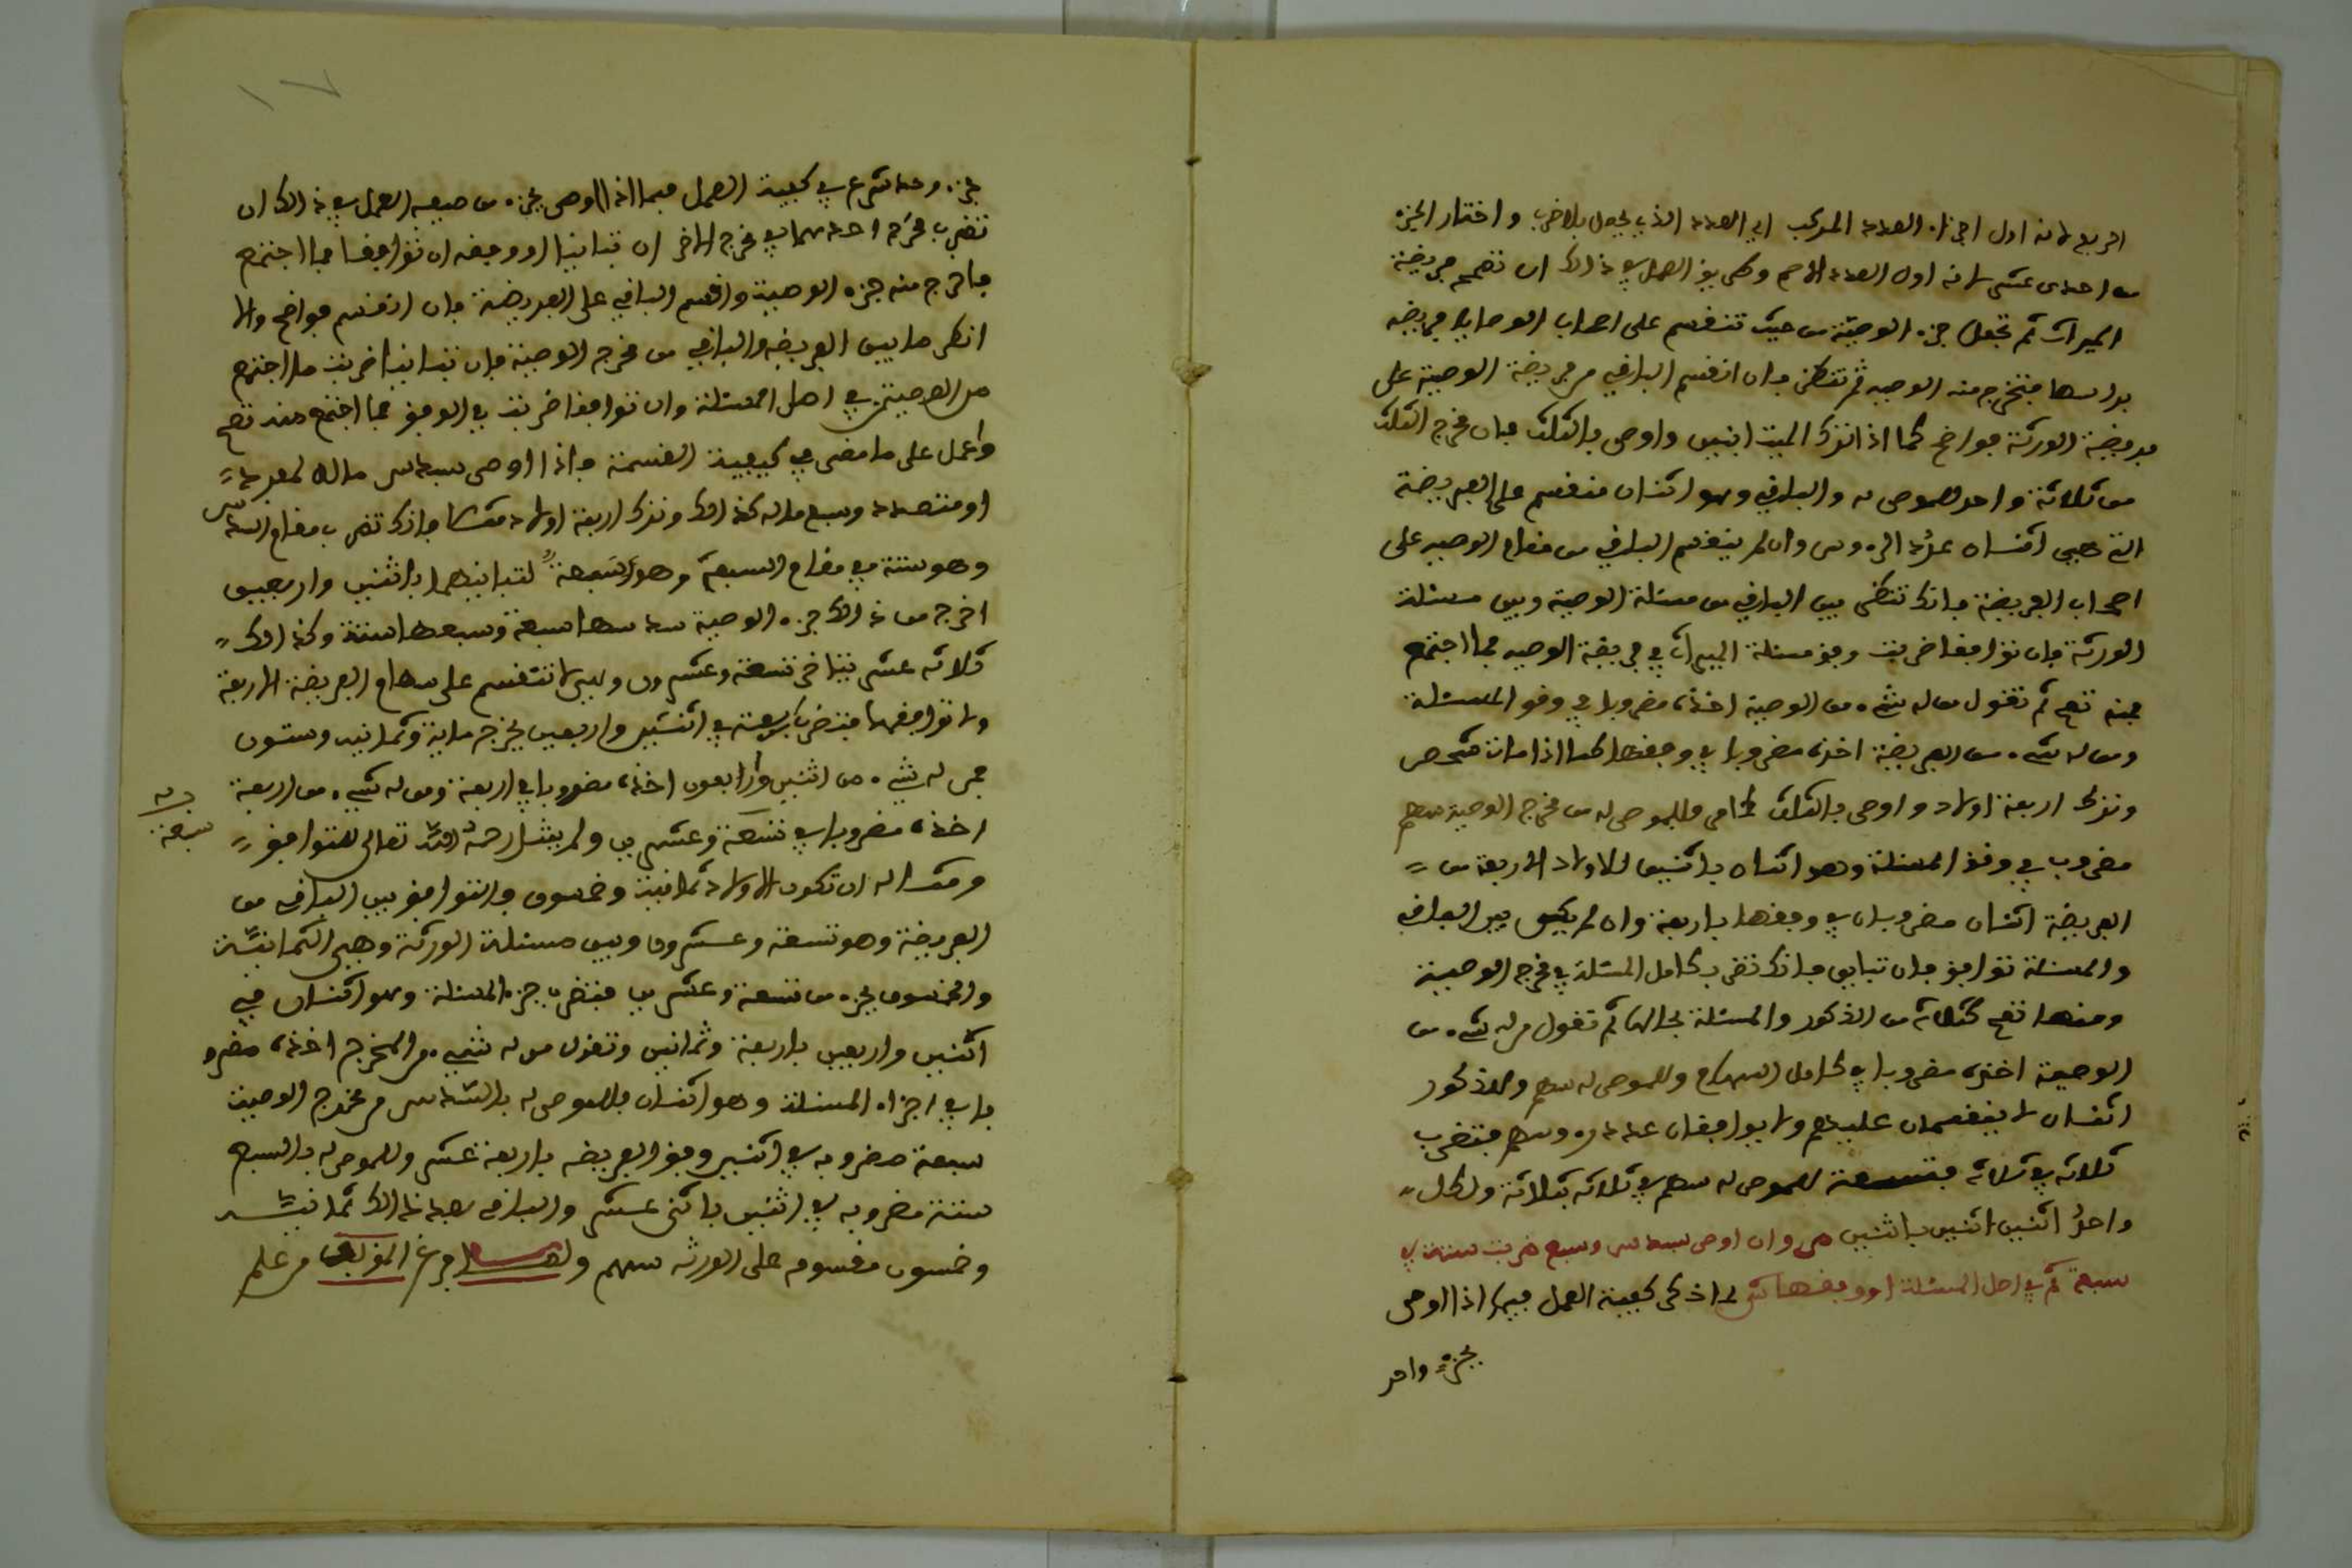 اربع لانه اول اجزاء العدد المركب اي العدد الذي يحصل بالضرب واختار الجزء
من احدى عشر لانه اول العدد الاصم وطريق العمل في ذالك ان تصحح فريضة
الميراث ثم تجعل جزء الوصية من حيث تنقسم على اصحاب الوصايا فريضة
براسها فتخرج منه الوصيه ثم تنظر فان انقسم الباقي من فريضة الوصية على
فريضة الورثة فواضح كما اذا ترك الميت ابنين واوصى بالثلث فان مخرج الثلث
من ثلاثة واحد للموصى له والباقي وهو اثنان منقسم على الفريضة
التي هي اثنان عدد الرءوس وان لم ينقسم الباقي من مقام الوصيه على
اصحاب الفريضة فانك تنظر بين الباقي من مسئلة الوصية وبين مسئلة
الورثة فان توافقا ضربت وفق مسئلة الميراث في فريضة الوصيه فما اجتمع
فمنه تصح ثم تقول من له شيء من الوصية اخذه مضروبا في وفق المسئلة
ومن له شيء من الفريضة اخذه مضروبا في وفقها كما اذا مات شخص
وترك اربعة اولاد واوصى بالثلث كما مر فللموصى له من مخرج الوصية سهم
مضروب في وفق المسئلة وهو اثنان باثنين للاولاد الاربعة من
الفريضة اثنان مضروبان في وفقها باربعة وان لم يكن بين الباقي
والمسئلة توافق بان تباين فانك تضرب كامل المسئلة في مخرج الوصية
ومنها تصح كثلاثة من الذكور والمسئلة بحالها ثم تقول من له شيء من
الوصية اخذه مضروبا في كامل السهام وللموصى له سهم وللذكور
اثنان لا ينقسمان عليهم ولا يوافقان عدد رءوسهم فتضرب
ثلاثه في ثلاثه بتسعة للموصى له سهم في ثلاثه بثلاثة ولكل
واحد اثنين اثنين باثنين ص وان اوصى بسدس وسبع ضربت ستة في
سبعة ثم في اصل المسئلة او وفقها ش لما ذكر كيفية العمل فيما اذا اوصى
بجزء واحد
١٧
بجزء وحد شرع في كيفية العمل فيما اذا اوصى بجزء من صيفه العمل في ذالك ان
تضرب مخرج احدهما في مخرج الاخر ان تباينا او وفقه ان توافقا فما اجتمع
فاخرج منه جزء الوصية واقسم الباقي على الفريضة فان انقسم فواضح والا
انظر ما بين الفريضه والباقي من مخرج الوصية فان تباينا ضربت ما اجتمع
من الوصيتين في اصل المسئلة وان توافقا ضربت في الوفق فما اجتمع منه تصح
واعمل على ما مضى في كيفية القسمة واذا اوصى بسدس ماله لمفرد
او متعدد وسبع ماله كذالك وترك اربعة اولاد مثلا فانك تضرب مقام السدس
وهو ستة في مقام السبعة وهو سبعة لتباينهما باثنين واربعين
اخرج من ذالك جزء الوصية سدسها سبعة وسبعها ستة وكذالك
ثلاثه عشر يتاخر تسعة وعشرون وهي لا تنقسم على سهام الفريضة الاربعة
ولا توافقها فتضرب اربعة في اثنين واربعين يخرج مائة وثمانيه وستون
فمن له شيء من اثنين واربعون اخذه مضروبا في اربعة ومن له شيء من اربعة
اخذه مضروبا في تسعة وعشرين ولم يمثل رحمه الله تعالى للتوافق
ومثاله ان تكون الاولاد ثمانية وخمسون والتوافق بين الباقي من
الفريضة وهو تسعة وعشرون وبين مسئلة الورثة وهي الثمانية
والخمسون بجزء من تسعة وعشرين فتضرب جزء المسئلة وهو اثنان في
اثنين واربعين باربعة وثمانين وتقول من له شيء من المخرج اخذه مضرو
با في اجزاء المسئلة وهو اثنان فللموصى له بالسدس من مخرج الوصية
سبعة مضروبه في اثنين وفق الفريضه باربعة عشر وللموصى له بالسبع
ستة مضروبه في اثنين باثنى عشر والباقي بعد ذالك ثمانية
وخمسون مقسوم على الورثه سهم ولما فرغ المؤلف من علم
سبعة